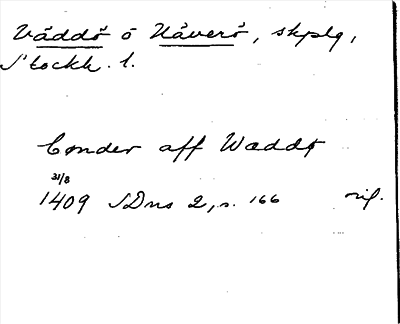 Väddö o Häverö, skplg,
Stockh. l.
Bønder aff Wæddø
31/8
1409 SDns 2, s. 166 orig.